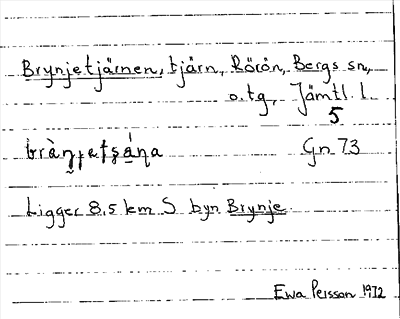 Brynjetjärnen, tjärn, Rörön, Bergs sn,
o. tg, Jämtl. l.
5
Gn 73
Ligger 8,5 km S byn Brynje.
Ewa Persson 1972